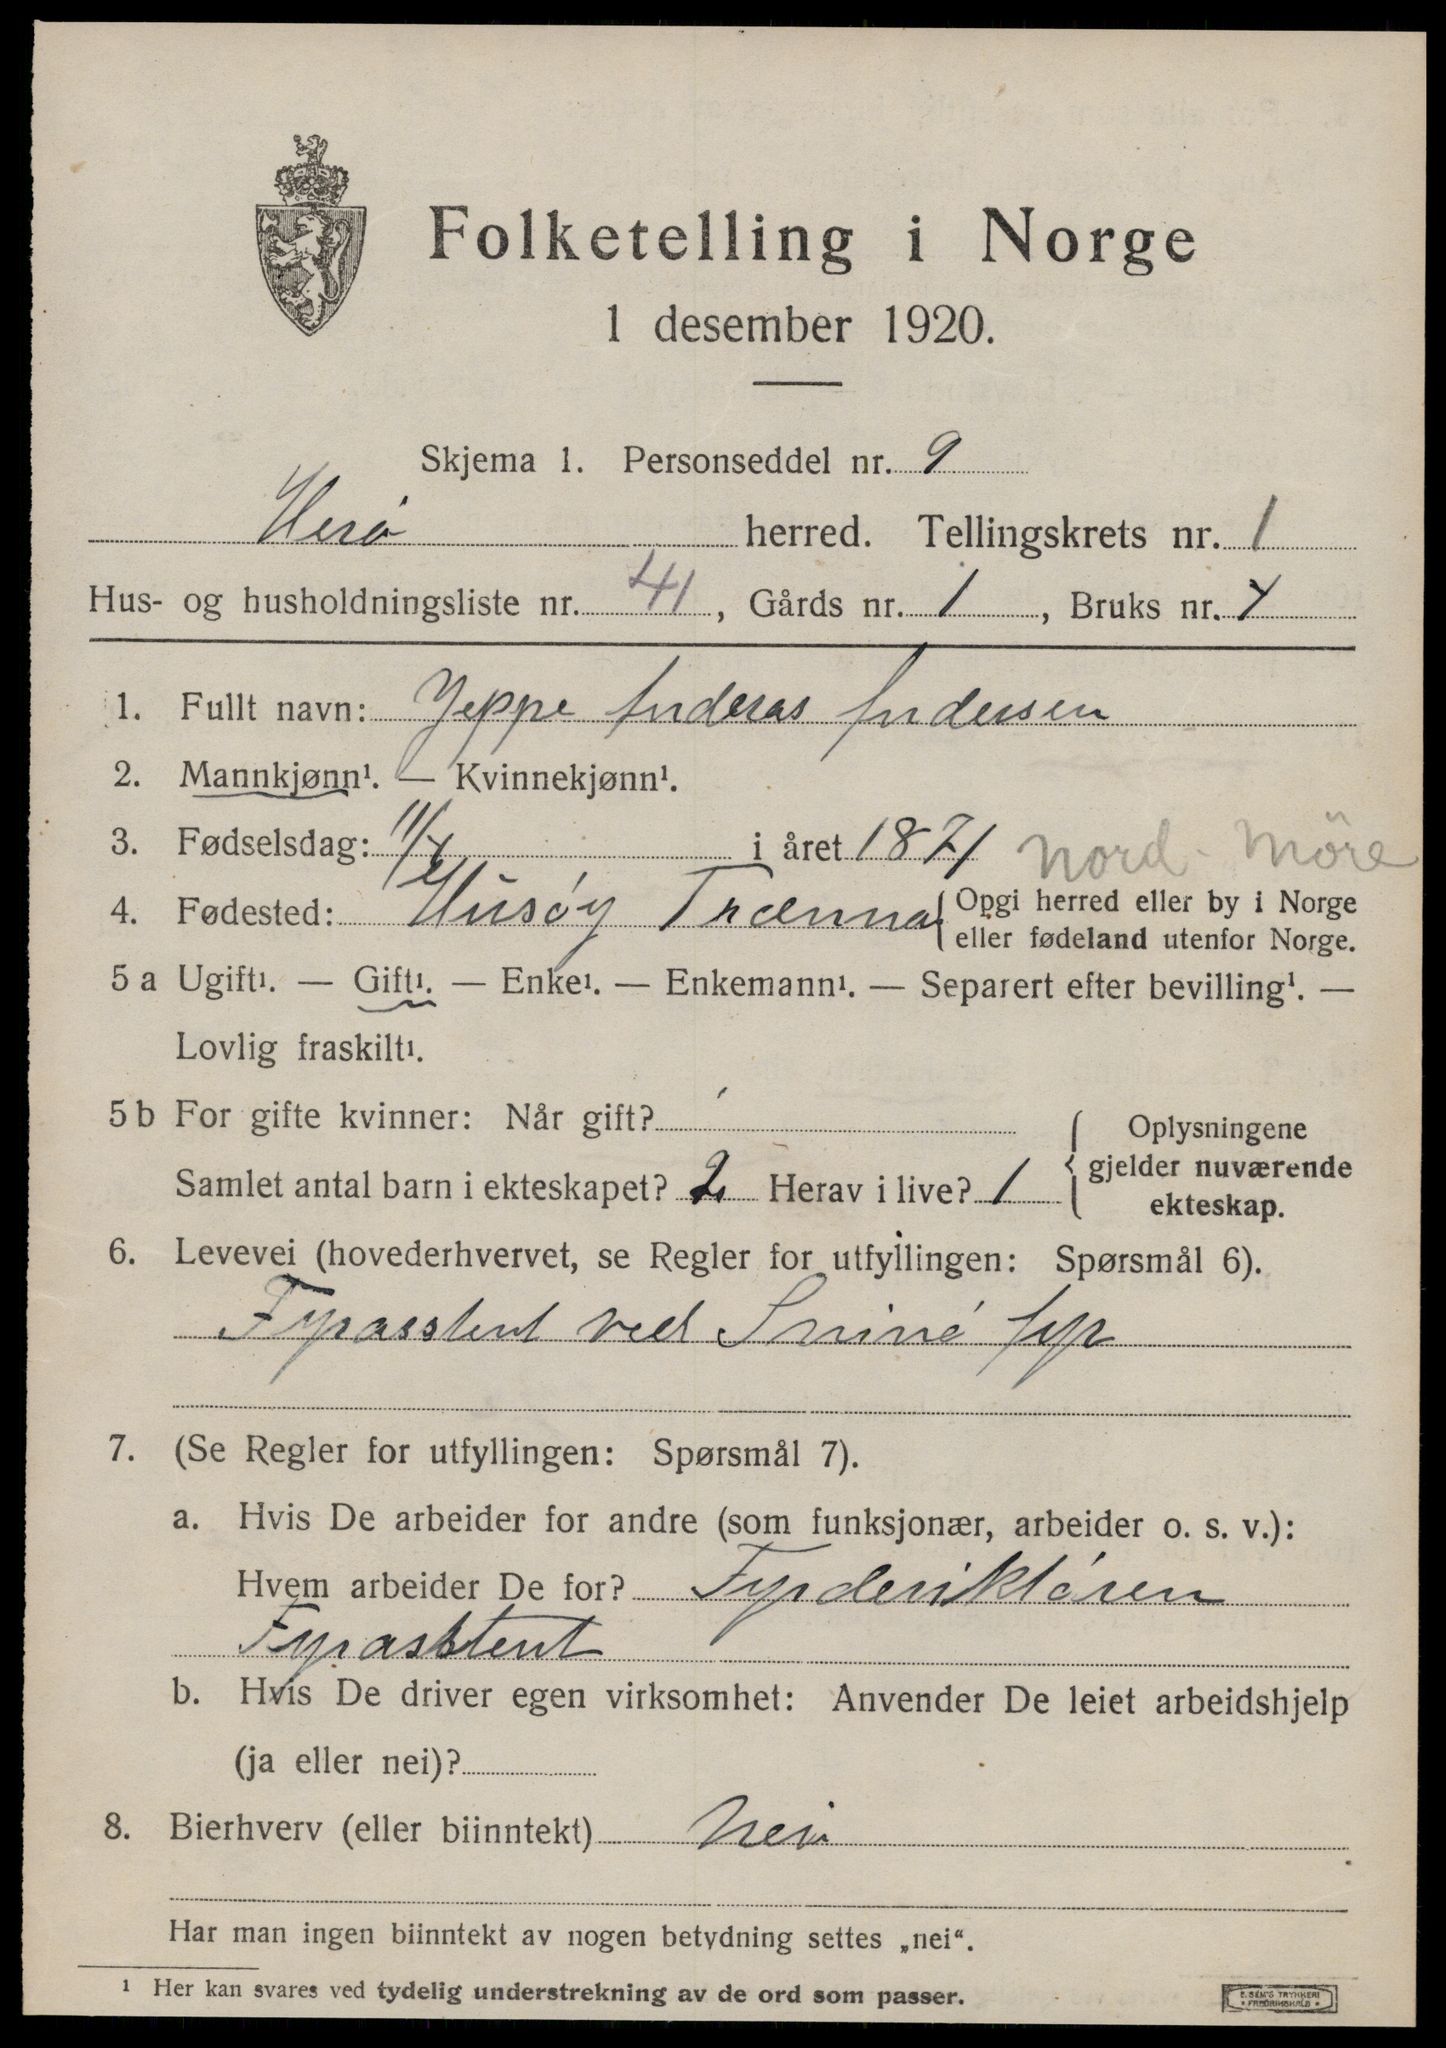 Folketelling i Norge
1 desember 1920.
Skjema 1. Personseddel nr. 9
Herö herred. Tellingskrets nr. 1
Hus- og husholdningsliste nr. 41, Gårds nr. 1, Bruks nr. 4
1. Fullt navn: Jeppe Anderas Andersen
2. Mannkjønn¹. — Kvinnekjønn¹.
3. Fødselsdag: 11/4 i året 1871 Nord-Möre
4. Fødested: Husøy Trænna {Opgi herred eller by i Norge
eller fødeland utenfor Norge.
5 a Ugift¹. — Gift¹. — Enke¹. — Enkemann¹. — Separert efter bevilling¹. —
Lovlig fraskilt¹.
5 b For gifte kvinner: Når gift?
Samlet antal barn i ekteskapet? 2 Herav i live? 1
Oplysningene
gjelder nuværende
ekteskap.
6. Levevei (hovederhvervet, se Regler for utfyllingen: Spørsmål 6).
Fyrasstent ved fyr
7. (Se Regler for utfyllingen: Spørsmål 7).
a. Hvis De arbeider for andre (som funksjonær, arbeider o. s. v.):
Hvem arbeider De for? Fyrderiktören
Fyrasstent
b. Hvis De driver egen virksomhet: Anvender De leiet arbeidshjelp
(ja eller nei)?
8. Bierhverv (eller biinntekt) Nei
Har man ingen biinntekt av nogen betydning settes „nei“.
¹ Her kan svares ved tydelig understrekning av de ord som passer.
E. SEM'S TRYKKERI
* FREDRIKSHALD *